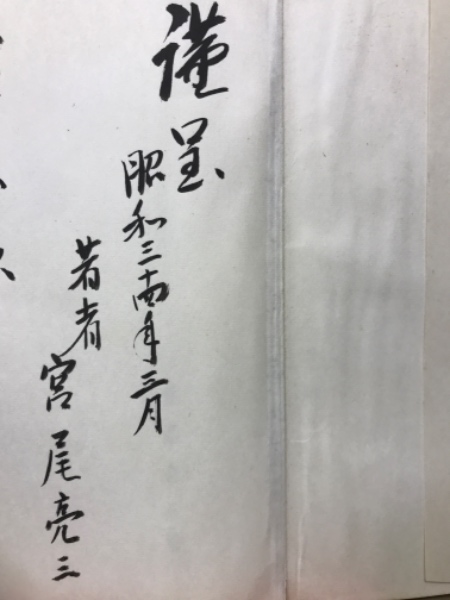 謹呈
昭和三十四年三月
著者
宮尾亮三